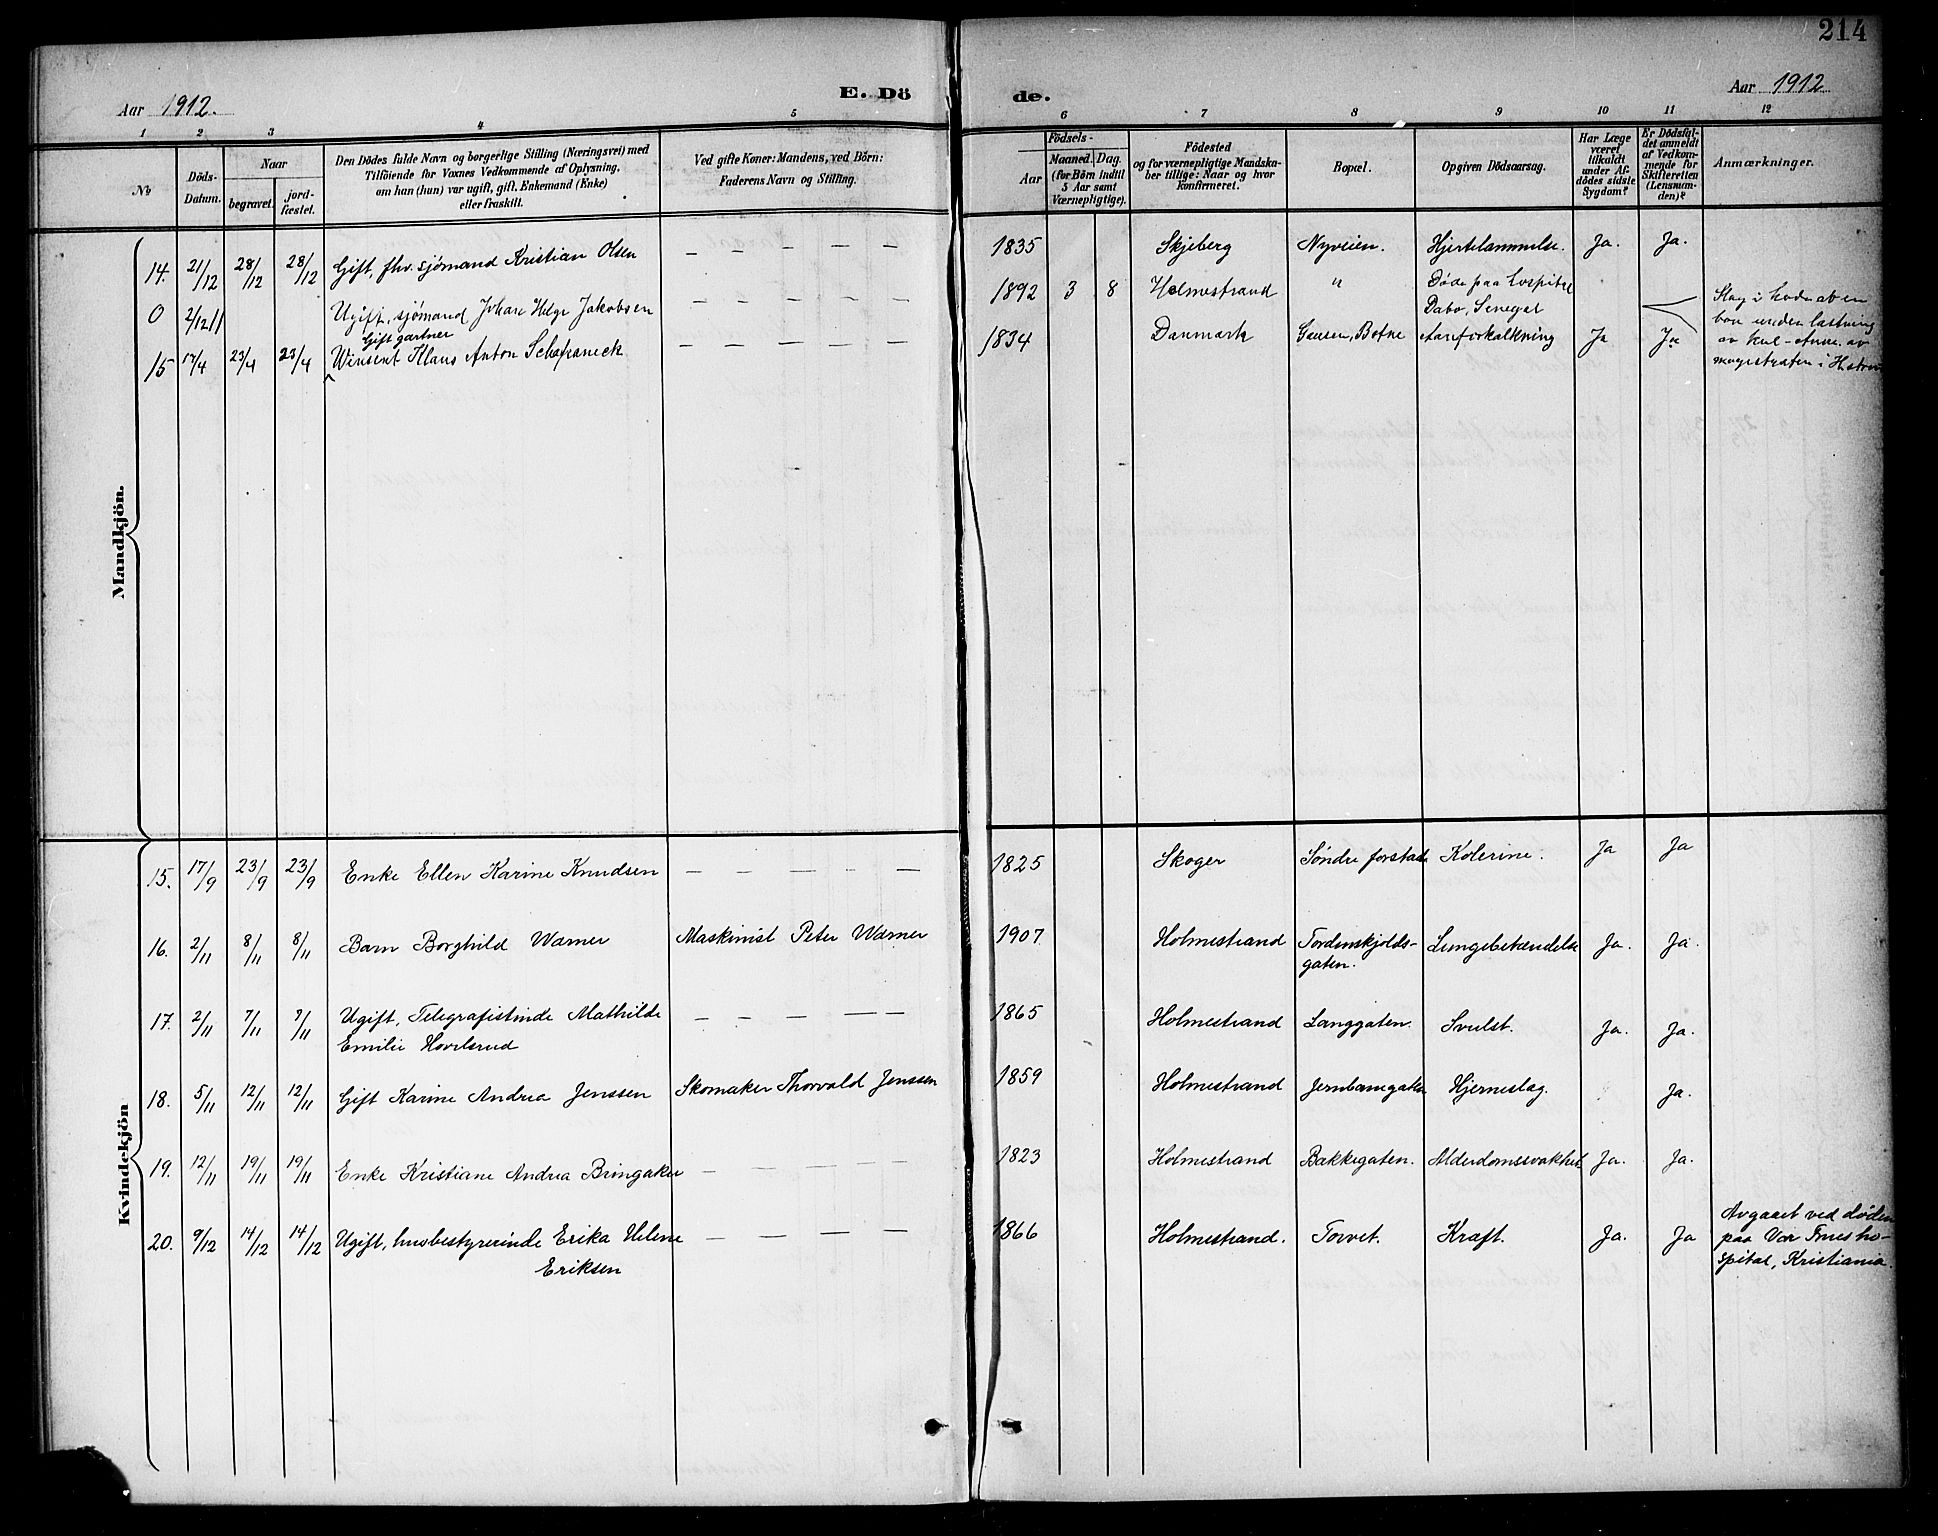 214
Aar 1912.
E. Dö de.
Aar 1912
1 2 3 4 5 6 7 8 9 10 11 12
No
Döds-Datum.
Naar
begravet.
jord-fæstet.
Den Dödes fulde Navn og borgerlige Stilling (Næringsvei) med
Tilföiende for Voxnes Vedkommende af Oplysning,
om han (hun) var ugift, gift, Enkemand (Enke)
eller fraskilt.
Ved gifte Koner: Mandens, ved Börn:
Faderens Navn og Stilling.
Födsels-
Aar
Maaned. Dag.
(for Børn indtil
5 Aar samt
Værnepligtige).
Födested
og for værnepligtige Mandska-
ber tillige: Naar og hvor
konfirmeret.
Bopæl.
Opgiven Dödsaarsag.
Har Læge
været
tilkaldt
under Af-
dödes sidste
Sygdom?
Er Dödsfal-
det anmeldt
af Vedkom-
mende for
Skifteretten
(Lensman-
den)?
Anmærkninger.
Mandkjön.
14. 21/12 28/12 28/12 Gift, fhv. sjømand Kristian Olsen — — — — — 1835 Skjeberg Nyveien. Hjertelammelse. Ja. Ja.
0 2/12 11 Ugift, sjømand Johan Helge Jakobsen — — — — — 1892 3 8 Holmestrand " Døde paa hospital
Dabo, Senegel
Slag i hodet ab en
bom under lastning
av kul - Anm. av
magistraten i
Gift gartner
15 17/4 23/4 23/4 Winsent Klaus Anton Schafraneck — — — — — 1834 Danmark Gausen, Botne Aareforkalkning Ja Ja
Kvindekjön
15. 17/9 23/9 23/9 Enke Ellen Karine Knudsen — — — — — 1825 Skoger Søndre forstad Kolerine. Ja Ja
16. 2/11 8/11 8/11 Barn Borghild Warner Maskinist Peter Warner 1907 Holmestrand Tordenskjolds-
gaten. Lungebetændelse Ja. Ja.
17. 2/11 7/11 7/11 Ugift, Telegrafistinde Mathilde
Emilie Hovilsrud — — — — — 1865 Holmestrand Langgaten. Svulst. Ja. Ja.
18. 5/11 12/11 12/11 Gift Karine Andrea Jenssen Skomaker Thorvald Jenssen 1859 Holmestrand Jernbanegaten Hjerneslag. Ja.
19. 12/11 19/11 19/11 Enke Kristiane Andrea Bringaker — — — — — 1823 Holmestrand Bakkegaten. Alderdomssvakhet Ja. Ja.
20. 9/12 14/12 14/12 Ugift, husbestyrerinde Erika Helene
Eriksen — — — — — 1866 Holmestrand. Torvet. Kræft. Ja. Ja
Avgaaet ved døden
paa Vor Frues ho-
spital, Kristiania.